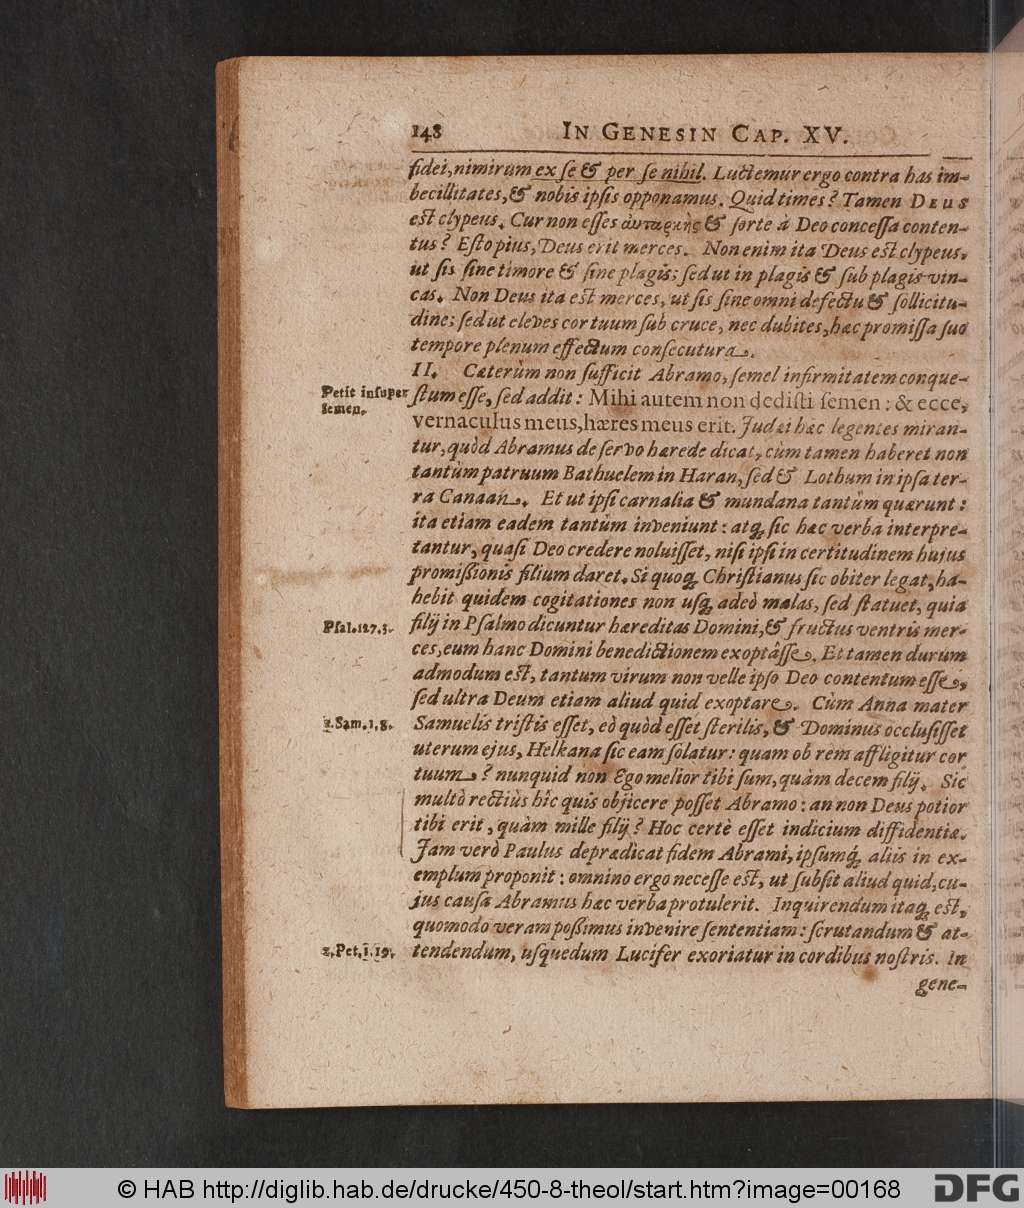 148 IN GENESIN CAP. XV.
fidei, nimirum ex ſe & per ſe nihil. Luctemur ergo contra has im-
becillitates, & nobis ipſis opponamus. Quid times? Tamen DEUS
eſt clypeus. Cur non eſſes ἀυταρκὴς & ſorte à Deo conceſſa conten-
tus? Eſto pius, Deus erit merces. Non enim ita Deus eſt clypeus,
ut ſis ſine timore & ſine plagis; ſed ut in plagis & ſub plagis vin-
cas. Non Deus ita eſt merces, ut ſis ſine omni defectu & ſollicitu-
dine; ſed ut eleves cor tuum ſub cruce, nec dubites, hæc promiſſa ſuo
tempore plenum effectum conſecutura.
II. Cæterùm non ſufficit Abramo, ſemel infirmitatem conque-
Petit inſuper
ſemen.
ſtum eſſe, ſed addit: Mihi autem non dediſti ſemen: & ecce,
vernaculus meus, hæres meus erit. Judæi hæc legentes miran-
tur, quòd Abramus de ſervo hærede dicat, cùm tamen haberet non
tantùm patruum Bathuelem in Haran, ſed & Lothum in ipſa ter-
ra Canaan. Et ut ipſi carnalia & mundana tantùm quærunt:
ita etiam eadem tantùm inveniunt: atq; ſic hæc verba interpre-
tantur, quaſi Deo credere noluiſſet, niſi ipſi in certitudinem hujus
promiſſionis filium daret. Si quoq; Chriſtianus ſic obiter legat, ha-
hebit quidem cogitationes non uſq; adeò malas, ſed ſtatuet, quia
Pſal. 127. 3.
filij in Pſalmo dicuntur hæreditas Domini, & fructus ventris mer-
ces, eum hanc Domini benedictionem exoptâſſe. Et tamen durum
admodum eſt, tantum virum non velle ipſo Deo contentum eſſe,
ſed ultra Deum etiam aliud quid exoptare. Cùm Anna mater
1. Sam. 1. 8.
Samuelis triſtis eſſet, eò quòd eſſet ſterilis, & Dominus occluſiſſet
uterum ejus, Helkana ſic eam ſolatur: quam ob rem affligitur cor
tuum? nunquid non Ego melior tibi ſum, quàm decem filij. Sic
multò rectiùs hîc quis objicere poſſet Abramo: an non Deus potior
tibi erit, quàm mille filij? Hoc certè eſſet indicium diffidentiæ.
Jam verò Paulus deprædicat fidem Abrami, ipſumq́; aliis in ex-
emplum proponit: omnino ergo neceſſe eſt, ut ſubſit aliud quid, cu-
jus cauſa Abramus hæc verba protulerit. Inquirendum itaq; eſt,
quomodo veram poſſimus invenire ſententiam: ſcrutandum & at-
2. Pet. 1. 19.
tendendum, uſquedum Lucifer exoriatur in cordibus noſtris. In
gene-
© HAB http://diglib.hab.de/drucke/450-8-theol/start.htm?image=00168
DFG